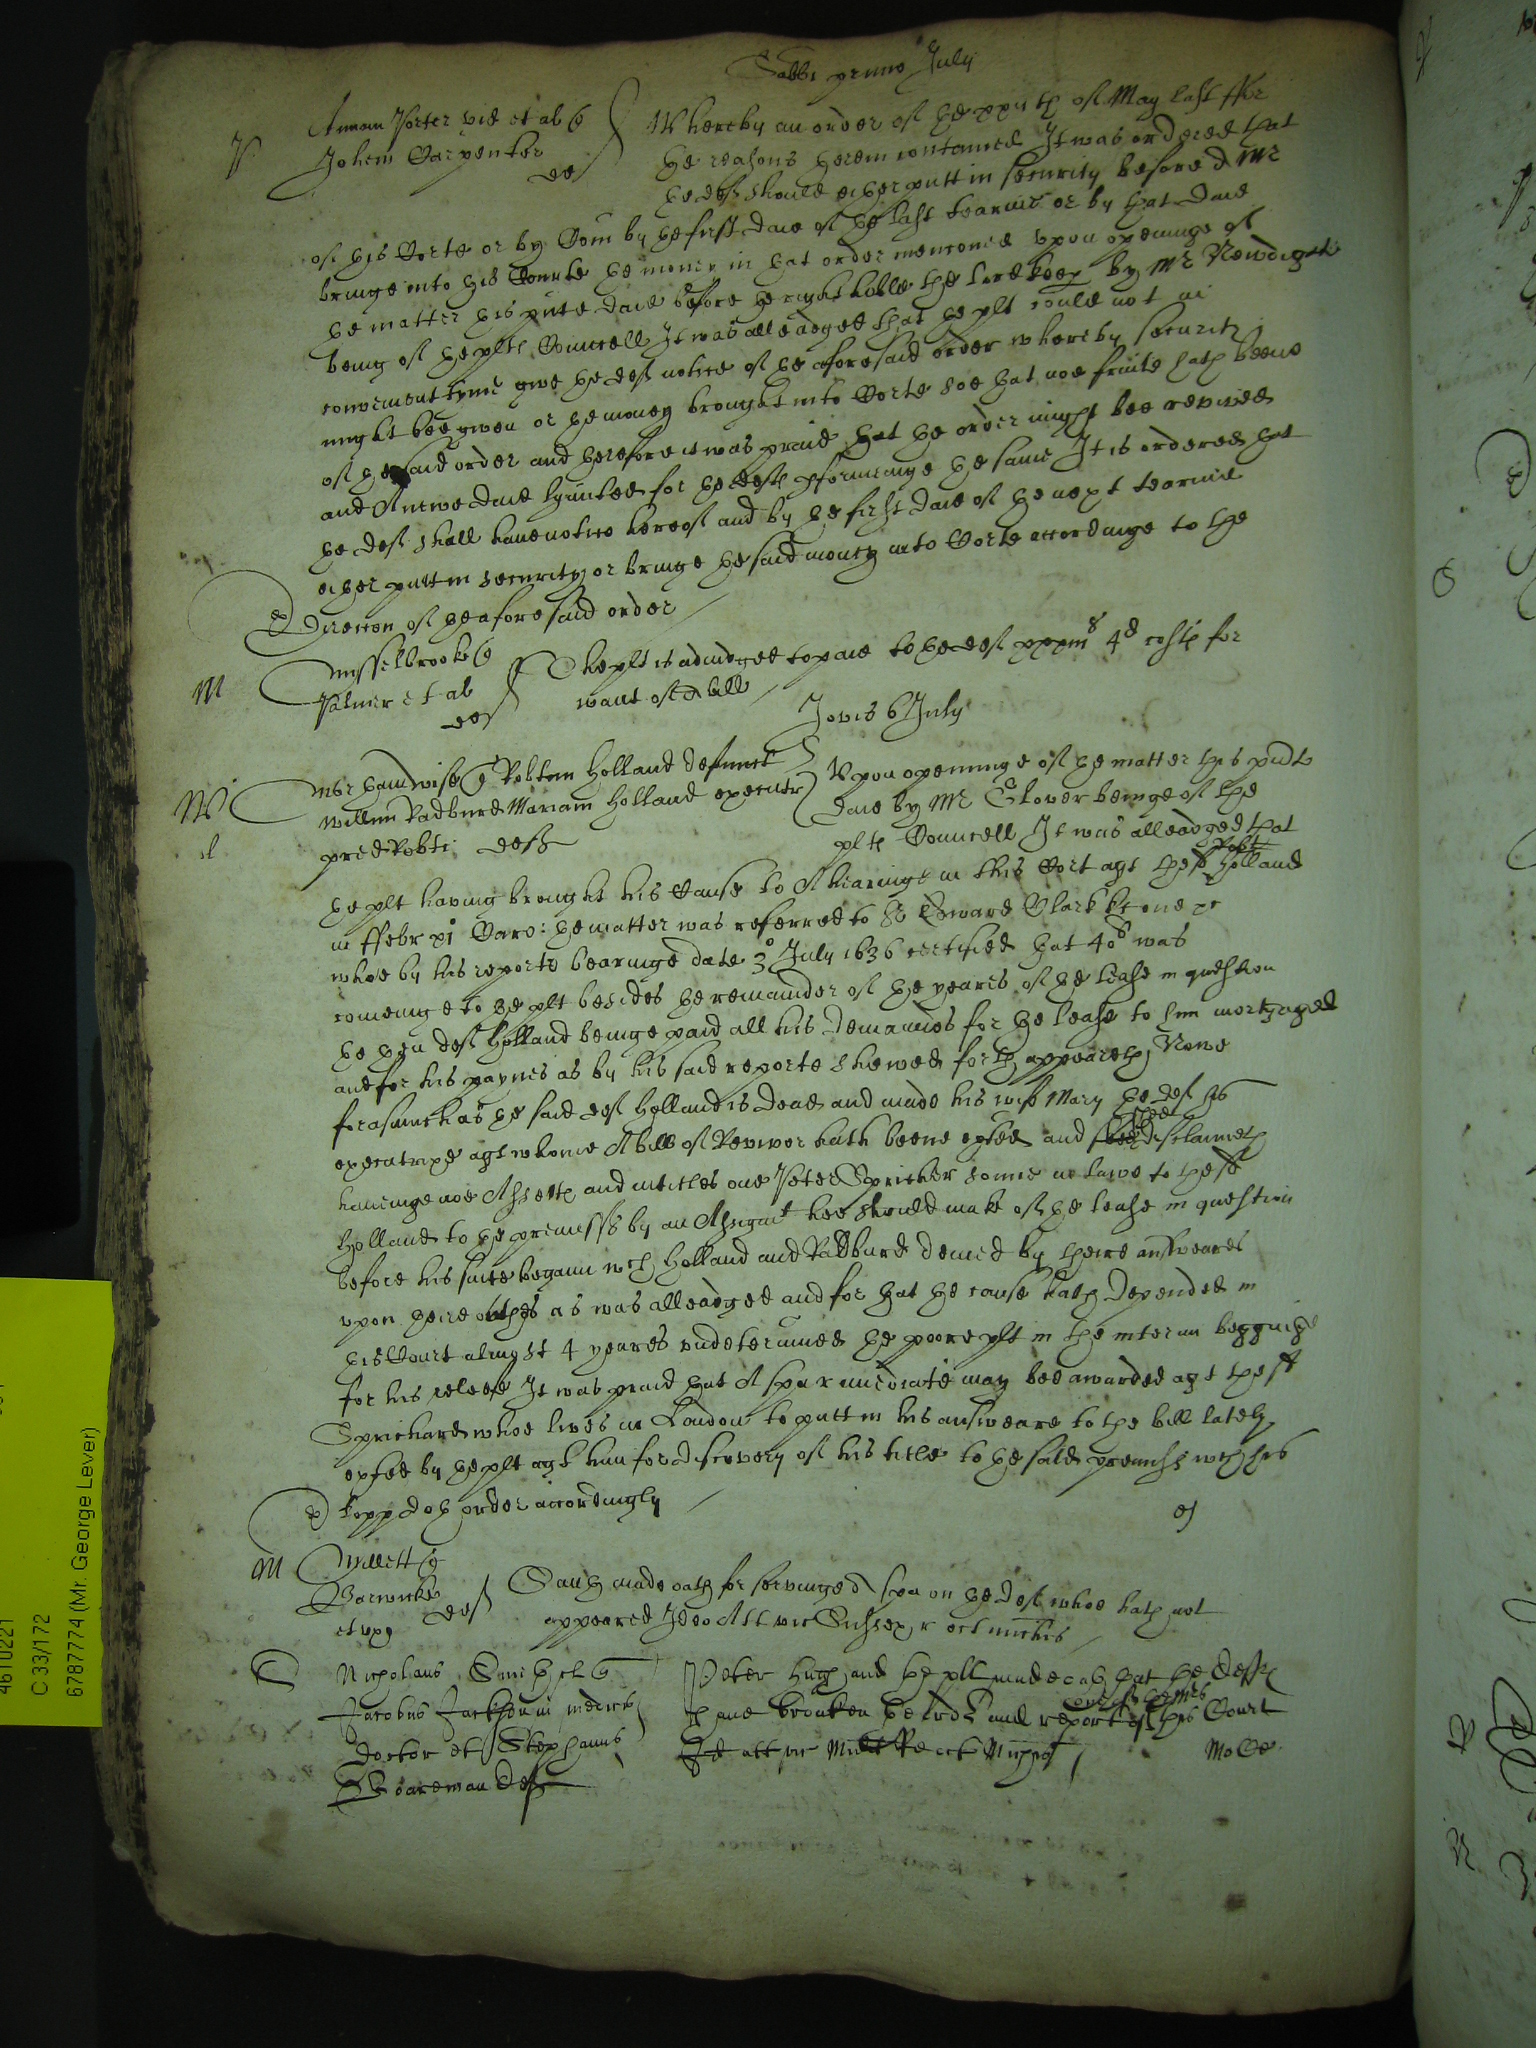 Sabbi primo July
P Annam Porter vid et al q
Johem Carpenter
def
Whereby an order of the xxvith of May last ffor
the reasons therein contained It was ordered that
the deft should either putt in security before a Mr
of this Corte or by Com by the first daie of the last tearme or by that daie
bringe into this Courte the money in that order menconed Upon openinge of
the matter this pnte daie before the right hoble the Lord keep by Mr Newdigate
being of the plts Councell It was alleadged that the plt could not in
convenient tyme give the deft notice of the aforesaid order whereby security
might bee given or the money brought into Corte soe that noe fruite hath beene
of the said order and therefore it was praid that the order might bee revived
and A newe daie lymited for the defts pformeinge the same It is ordered that
the deft shall have notice hereof and by the first daie of the next tearme
either putt in security or bringe the said money into Corte accordinge to the
direccon of the aforesaid order
M Musselbrooke q
Palmer et al
def
The plt is adiudged to paie to the deft xxxiiis 4d costs for
want of A bill
Jovis 6 July
M
Merchant wise q Robtum Holland defunct
Willm Radburd Mariam Holland executr
pred Robti defts
Upon openinge of the matter this pndte
daie by Mr Glover beinge of the
plts Councell It was alleadged that
the plt having brought his Cause to A hearinge in this Cort agt the sd Robt Holland
in ffebr xi Caro: the matter was referred to Sr Edward Clark kt one &c
whoe by his reporte bearinge date 3o July 1636 certified that 40s was
comeinge to the plt besides the remainder of the yeares of the lease in question
the then deft Holland beinge paid all his demaunds for the lease to him mortgaged
and for his paynes as by his said reporte shewed forth appeareth Nowe
forasmuch as the said deft Holland is dead and made his wife Mary the deft his
executrixe agt whome A bill of Revivor hath beene exhited and shee disclaimeth
haveinge noe Assetts and intitles one Peter Spricher sonne in lawe to the sd
Holland to the premisses by an Assignmt hee should make of the lease in question
before this suite begann wch Holland and Radburd denied by theire answeares
upon theire oathes as was alleadged and for that the cause hath depended in
this Court almost 4 yeares undetermined the poore plt in the interim begginge
for his releefe It was praid that A spa r imediate may bee awarded agt the sd
Sprichard whoe lives in London to putt in his answeare to the bill lately
exhited by the plt agt him for discovery of his title to the said premisses wch this
Corte doth order accordingly
M Willett q
Barwicke
et ux def
Sauth made oath for servinge A spa on the deft whoe hath not
appeared Ideo Att vic Sussex r oct michis
S Nicholaus Smith q
Jacobus Jackson in medicis
doctor et Stephanus
Boareman defts
Peter Hugh and the plt made oath that the defts
have broaken the order and report of this Court
Id att vic Midd r oct Michis